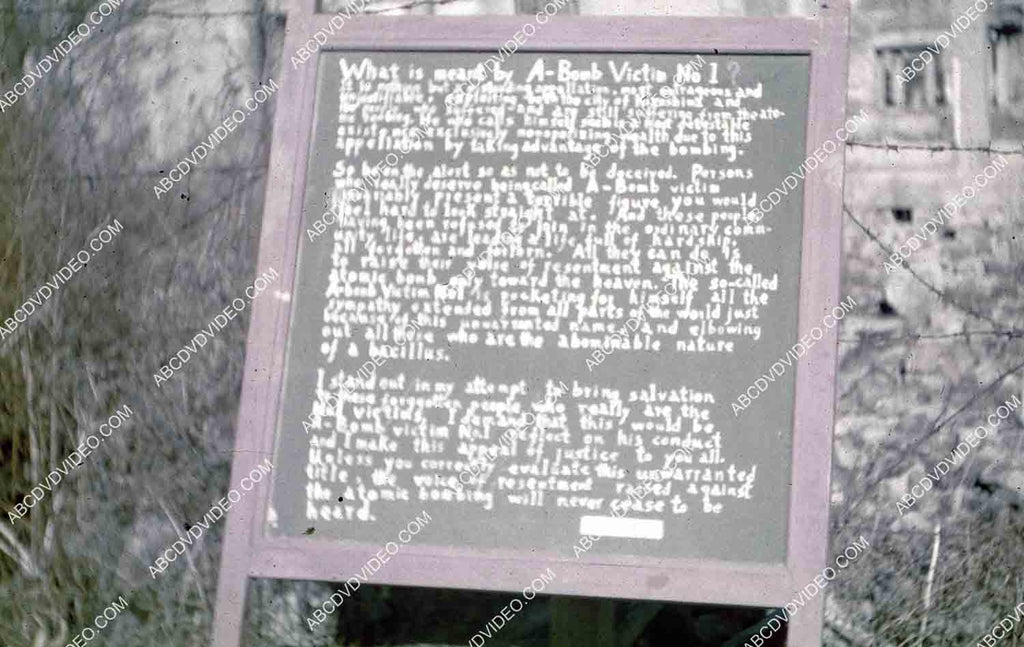 What is meant by A-Bomb Victim No 1?
It is nothing but a appellation, most outrageous and
exploiting both the city of Hiroshima and
still suffering from the ato-
mic bombing. He who calls himself
exist exclusively monopolizing wealth due to this
appellation by taking advantage of the bombing.
So be on the alert so as not to be deceived. Persons
who really deserve being called A-Bomb victim
invariably present a terrible figure, you would
feel hard to look straight at. And those people
having been refused to join in the ordinary comm-
unity, are leading a life full of hardship,
all forlorn. All they can do is
to raise their voice of resentment against the
atomic bomb only toward the heaven. The so-called
A-bomb Victim No1 is pocketing for himself all the
sympathy extended from all parts of the world just
because of this unwarranted name, and elbowing
out all those who are the abominable nature
of a bacillus.
I stand out in my attempt to bring salvation
to these forgotten people who really are the
victims. I that this would be
A-bomb victim No1 reflect on his conduct
and I make this appeal of justice to you all.
Unless you correctly evaluate this unwarranted
title, the voice of resentment raised against
the atomic bombing will never cease to be
heard.
ABCDVDVIDEO.COM